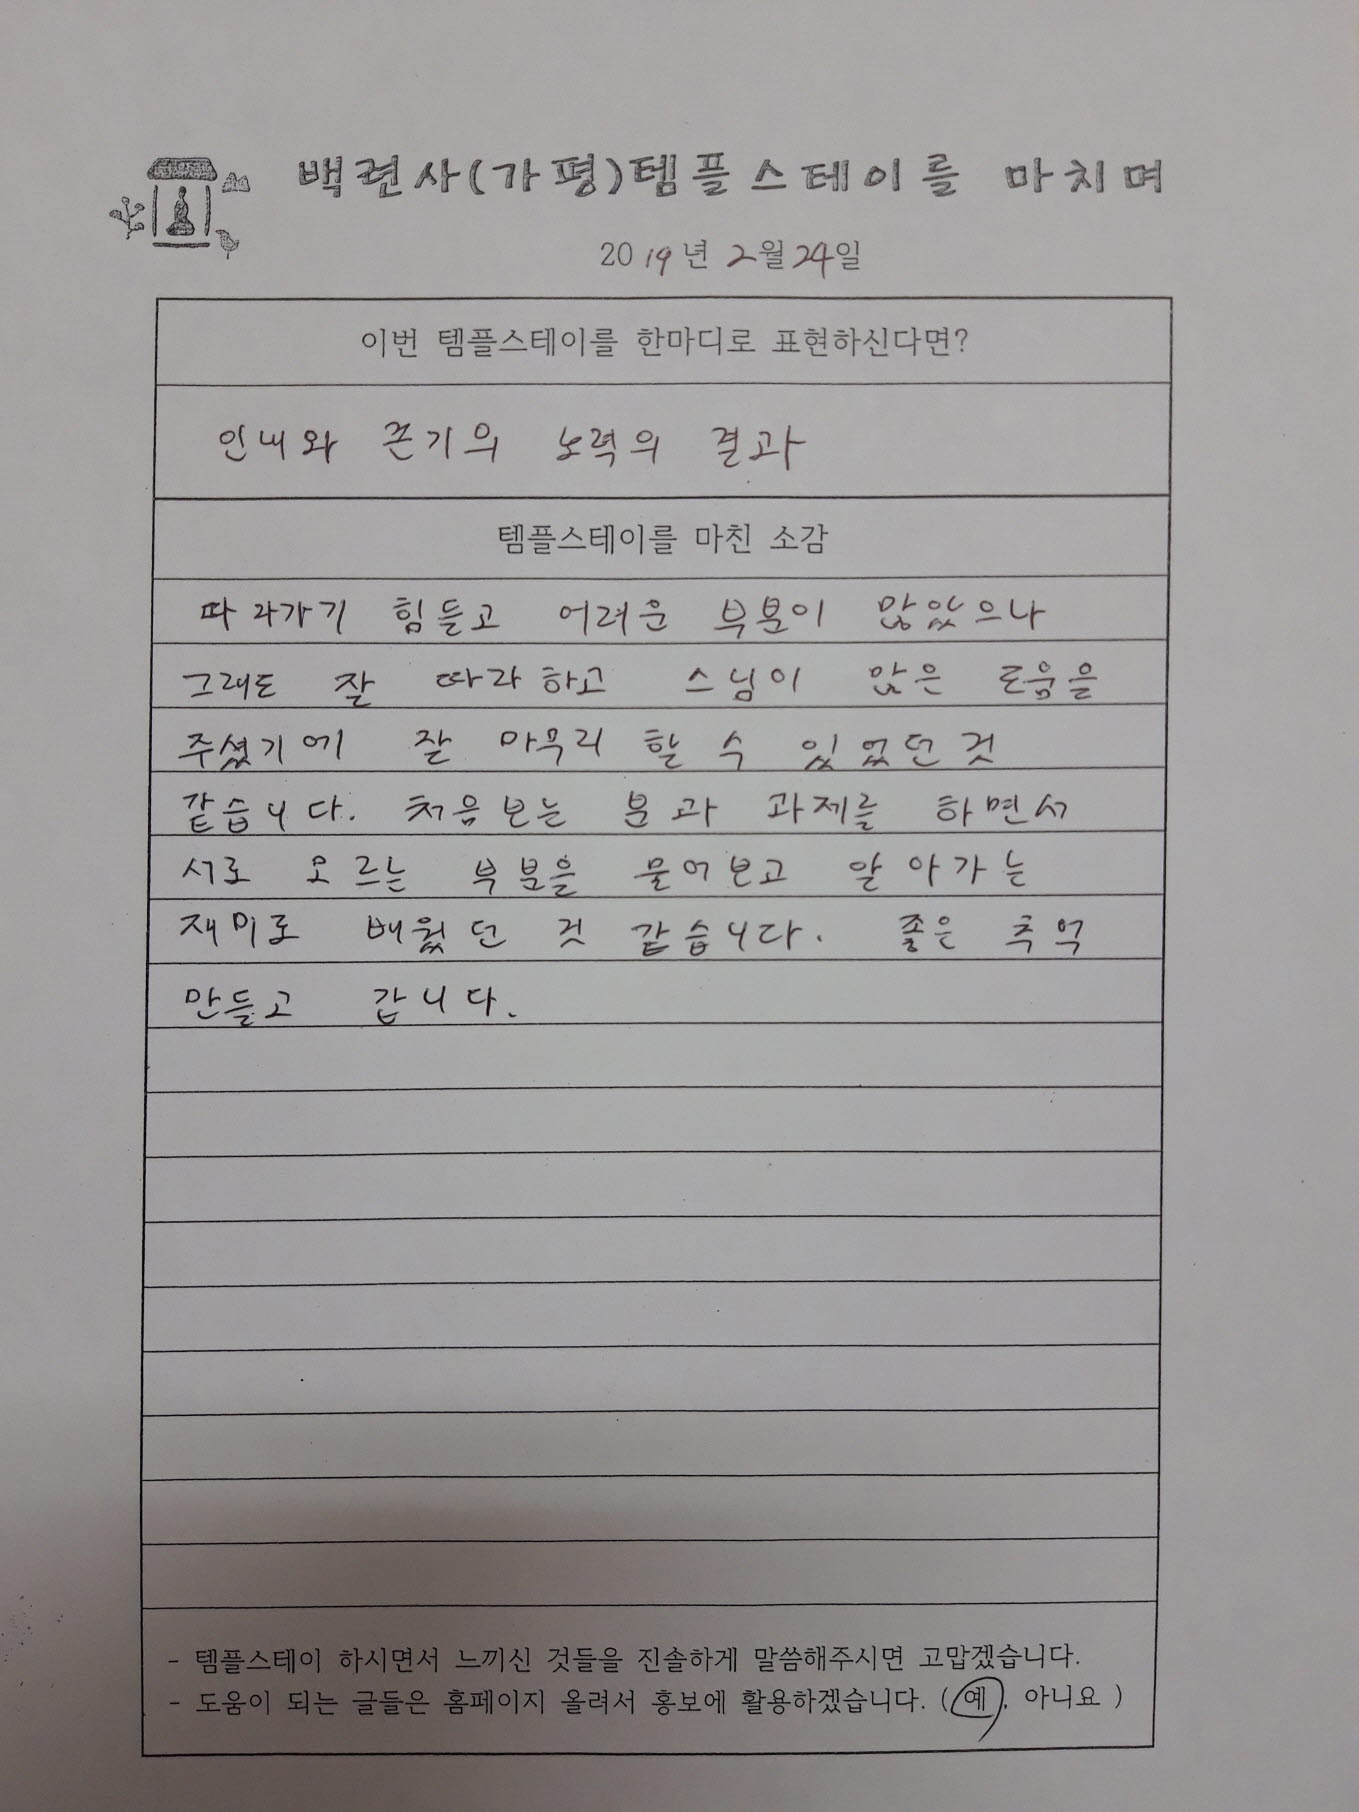 백련사(가평)템플스테이를 마치며
2019년 2월 24일
이번 템플스테이를 한마디로 표현하신다면?
인내와 끈기의 노력의 결과
템플스테이를 마친 소감
따라가기 힘들고 어려운 부분이 많았으나
그래도 잘 따라하고 스님이 많은 도움을
주셨기에 잘 마무리 할 수 있었던 것
같습니다. 처음보는 분과 과제를 하면서
서로 모르는 부분을 물어보고 알아가는
재미로 배웠던 것 같습니다. 좋은 추억
만들고 갑니다.
- 템플스테이 하시면서 느끼신 것들을 진솔하게 말씀해주시면 고맙겠습니다.
- 도움이 되는 글들은 홈페이지 올려서 홍보에 활용하겠습니다. ( 예, 아니요 )